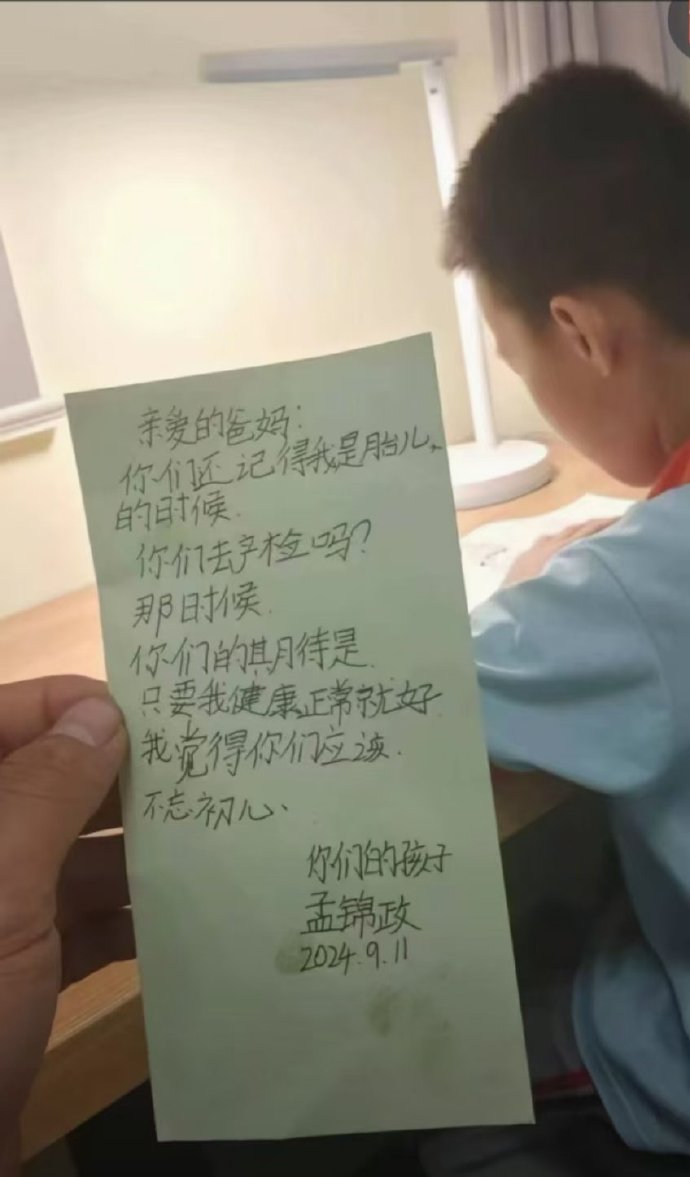 亲爱的爸妈：
你们还记得我是胎儿、
的时候.
你们去产检吗？
那时候.
你们的期待是.
只要我健康正常就好.
我觉得你们应该.
不忘初心、
你们的孩子
孟锦政
2024.9.11